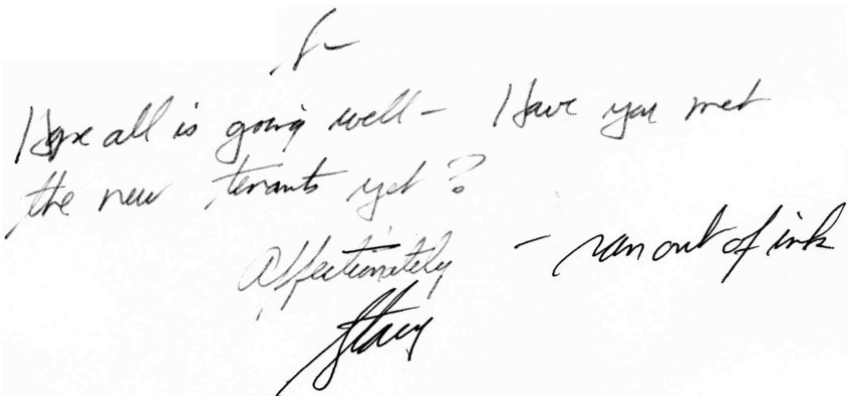 Hope all is going well - Have you met
the new tenants yet?
Affectionately - ran out of ink
Stacy